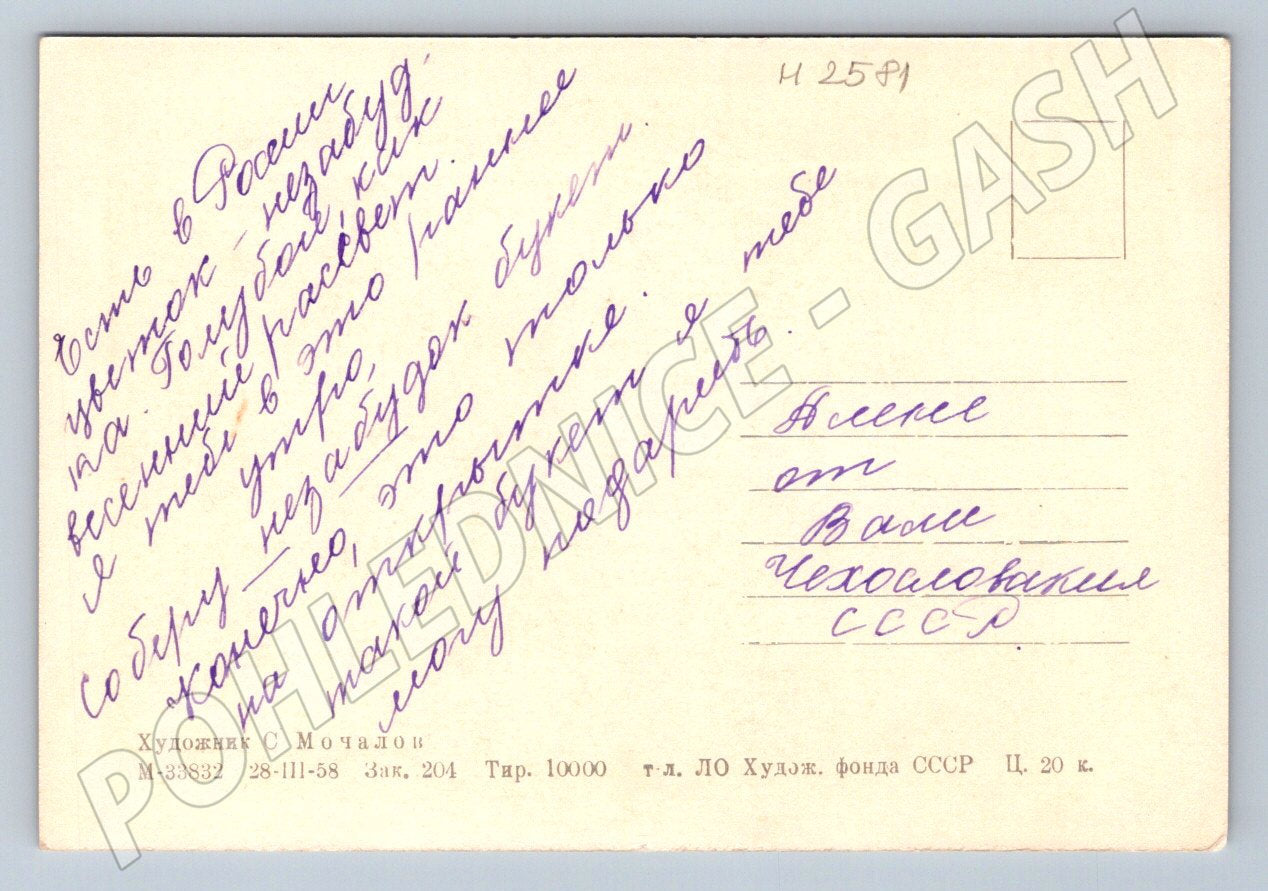 И 2581
Есть в России
цветок - незабуд-
ка. Голубой, как
весенний рассвет.
Я тебе в это раннее
утро,
Соберу незабудок букет.
Конечно, это только
на открытке.
такой букет я тебе
могу подарить.
Алене
от
Вали
Чехословакия
СССР
Художник С Мочалов
М-33832 28-III-58 Зак. 204 Тир. 10000 т-л. ЛО Худож. фонда СССР Ц. 20 к.
POHLEDNICE - GASH